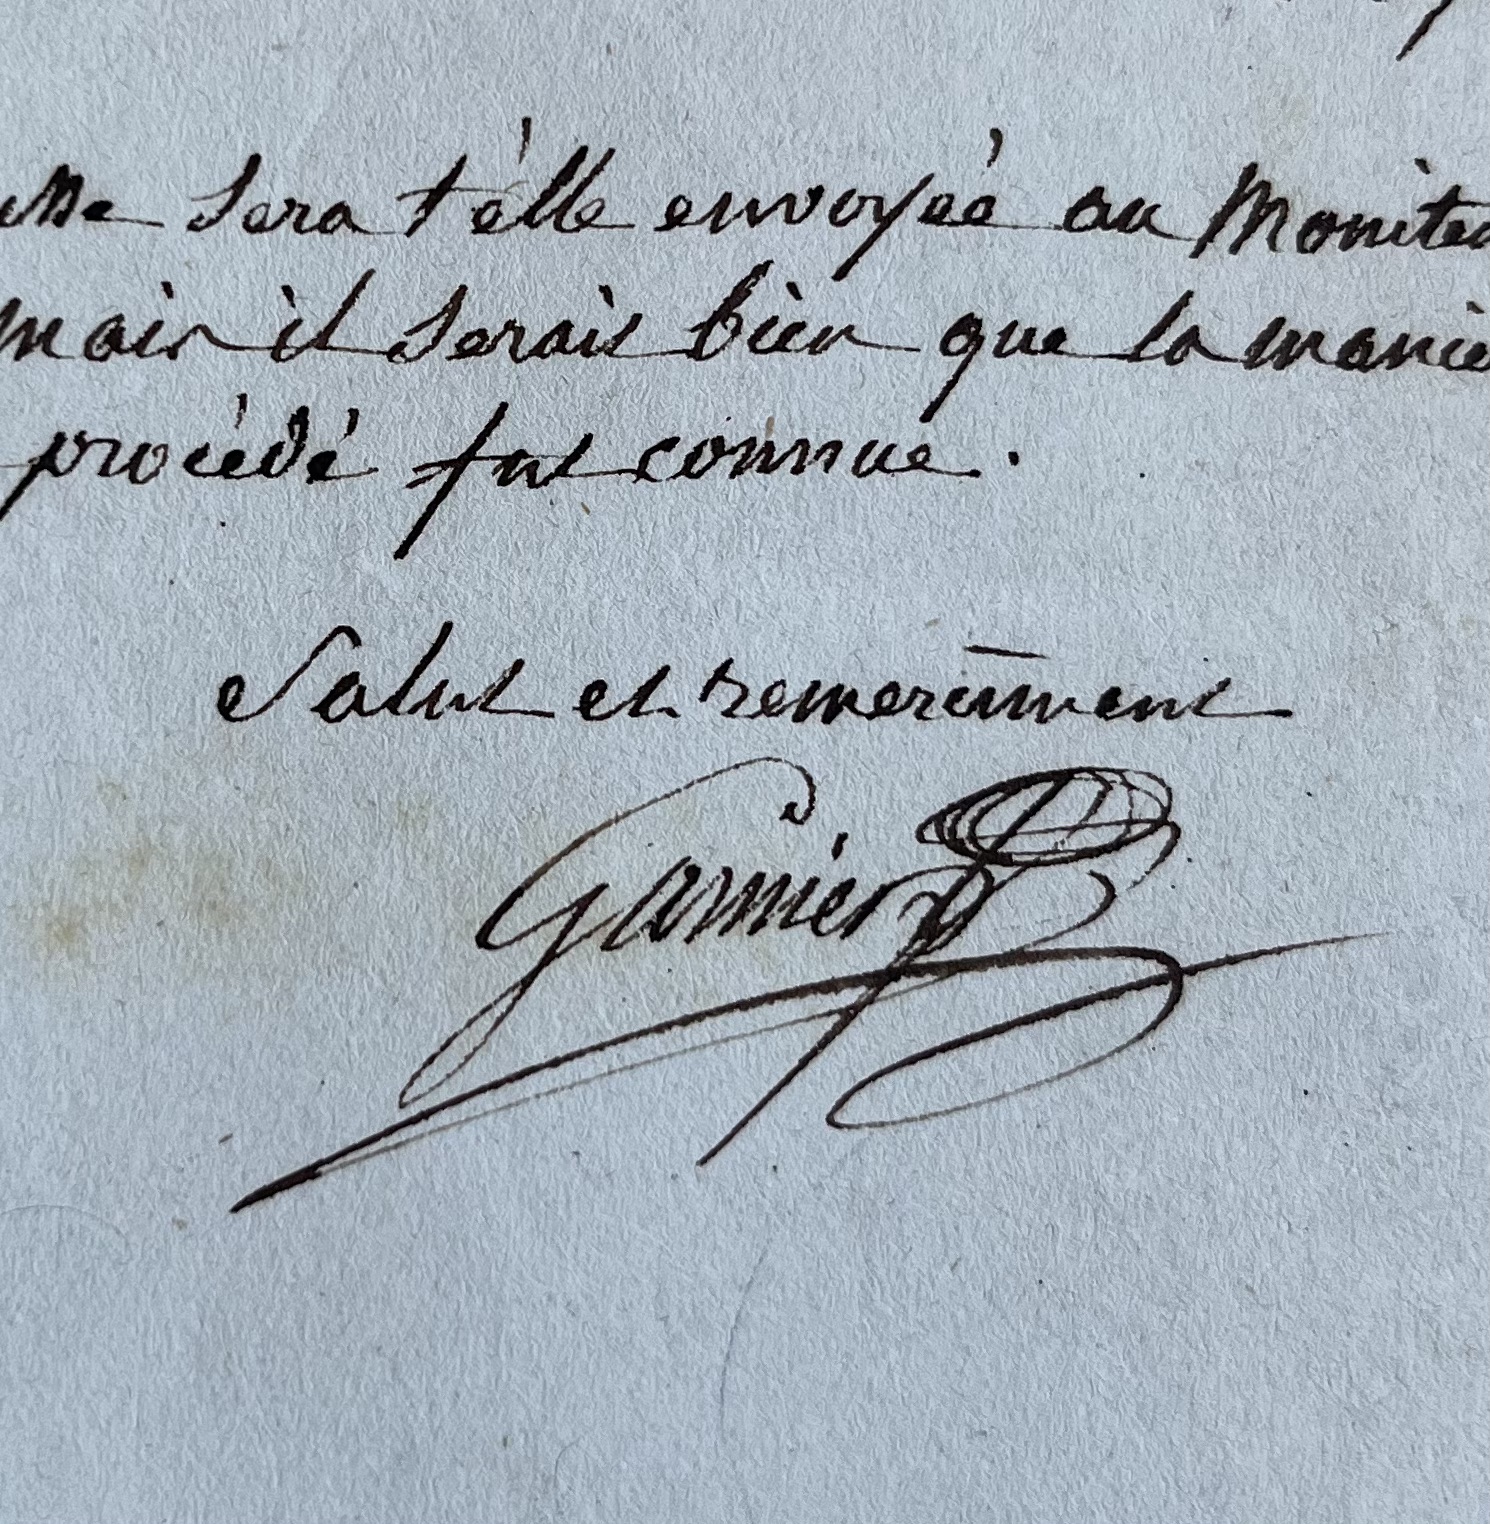 elle sera t'elle envoyée au Moniteu
mais il serait bien que la maniè
procédé fut connue.
Salut et remercîment
Garnier